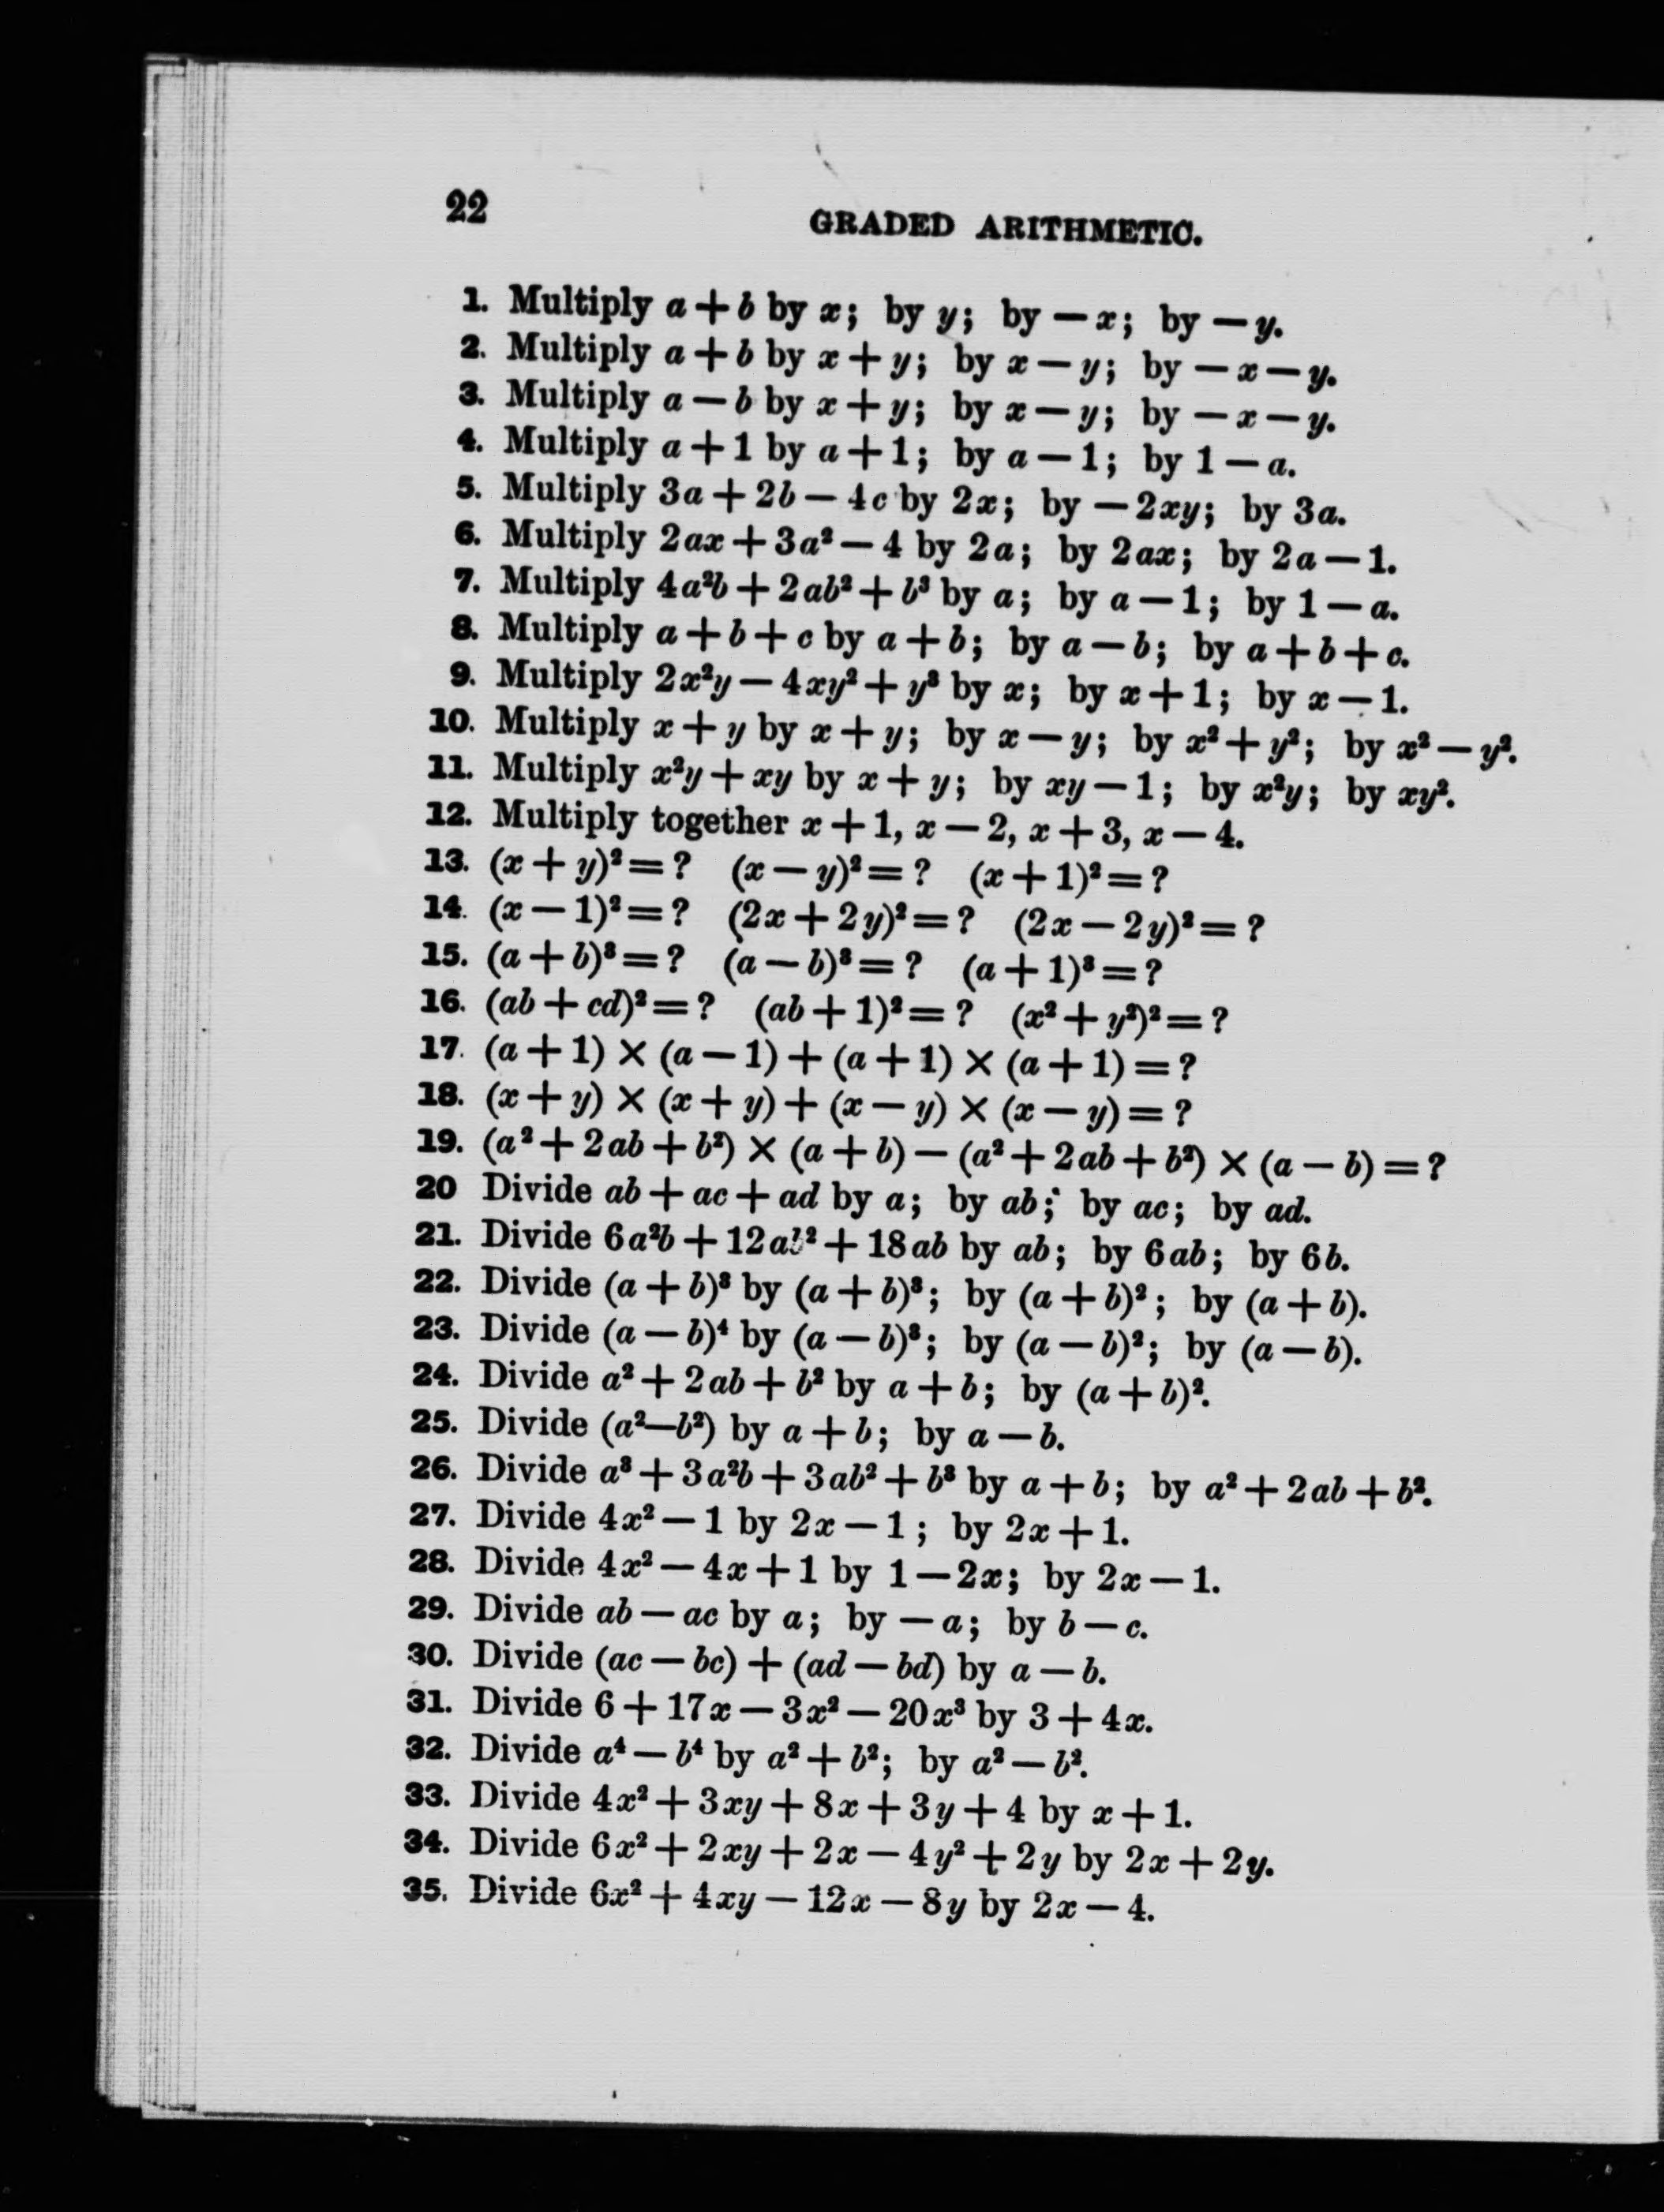 22
GRADED ARITHMETIC.
1. Multiply a + b by x; by y; by — x; by — y.
2. Multiply a + b by x + y; by x — y; by — x — y.
3. Multiply a — b by x + y; by x — y; by — x — y.
4. Multiply a + 1 by a + 1; by a — 1; by 1 — a.
5. Multiply 3a + 2b — 4c by 2x; by — 2xy; by 3a.
6. Multiply 2ax + 3a² — 4 by 2a; by 2ax; by 2a — 1.
7. Multiply 4a²b + 2ab² + b³ by a; by a — 1; by 1 — a.
8. Multiply a + b + c by a + b; by a — b; by a + b + c.
9. Multiply 2x²y — 4xy² + y³ by x; by x + 1; by x — 1.
10. Multiply x + y by x + y; by x — y; by x² + y²; by x² — y².
11. Multiply x²y + xy by x + y; by xy — 1; by x²y; by xy².
12. Multiply together x + 1, x — 2, x + 3, x — 4.
13. (x + y)² = ? (x — y)² = ? (x + 1)² = ?
14. (x — 1)² = ? (2x + 2y)² = ? (2x — 2y)² = ?
15. (a + b)³ = ? (a — b)³ = ? (a + 1)³ = ?
16. (ab + cd)² = ? (ab + 1)² = ? (x² + y²)² = ?
17. (a + 1) × (a — 1) + (a + 1) × (a + 1) = ?
18. (x + y) × (x + y) + (x — y) × (x — y) = ?
19. (a² + 2ab + b²) × (a + b) — (a² + 2ab + b²) × (a — b) = ?
20 Divide ab + ac + ad by a; by ab; by ac; by ad.
21. Divide 6a²b + 12ab² + 18ab by ab; by 6ab; by 6b.
22. Divide (a + b)³ by (a + b)³; by (a + b)²; by (a + b).
23. Divide (a — b)⁴ by (a — b)³; by (a — b)²; by (a — b).
24. Divide a² + 2ab + b² by a + b; by (a + b)².
25. Divide (a²—b²) by a + b; by a — b.
26. Divide a³ + 3a²b + 3ab² + b³ by a + b; by a² + 2ab + b².
27. Divide 4x² — 1 by 2x — 1; by 2x + 1.
28. Divide 4x² — 4x + 1 by 1 — 2x; by 2x — 1.
29. Divide ab — ac by a; by — a; by b — c.
30. Divide (ac — bc) + (ad — bd) by a — b.
31. Divide 6 + 17x — 3x² — 20x³ by 3 + 4x.
32. Divide a⁴ — b⁴ by a² + b²; by a² — b².
33. Divide 4x² + 3xy + 8x + 3y + 4 by x + 1.
34. Divide 6x² + 2xy + 2x — 4y² + 2y by 2x + 2y.
35. Divide 6x² + 4xy — 12x — 8y by 2x — 4.